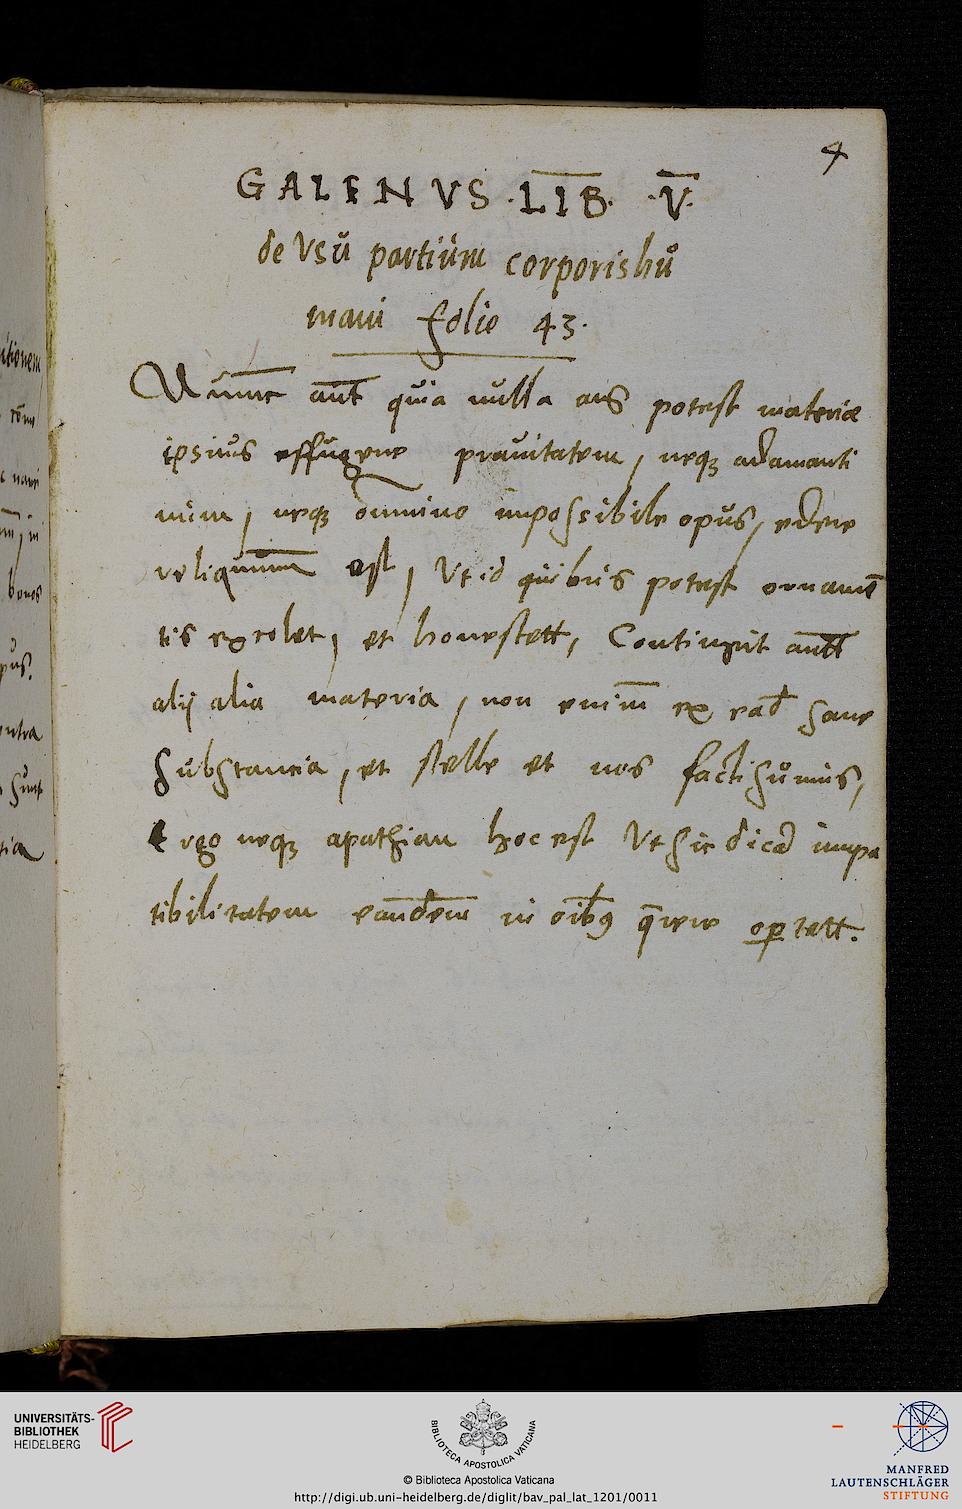 4
GALENVS. LIB. V.
de Vsu partium corporis hu
mani folio 43.
Nunc aut quia nulla ars potest materiæ
ipsius effugere prauitatem, neq; adamanti
num, neq; omnino impossibile opus, edere
reliquum est, Vt id quibus potest orname
tis excolat, et honestett, Contingit autt
alij alia materia, non enim ex ead sane
substancia, et stelle et nos facti sumus,
Ergo neq; apathian hoc est Vt sic dicā impa
tibilitatem eandem in oib9 qrere oportett.
itionem
bonos
pus.
ntra
sunt
UNIVERSITÄTS-
BIBLIOTHEK
HEIDELBERG
BIBLIOTECA APOSTOLICA VATICANA
© Biblioteca Apostolica Vaticana
http://digi.ub.uni-heidelberg.de/diglit/bav_pal_lat_1201/0011
MANFRED
LAUTENSCHLÄGER
STIFTUNG